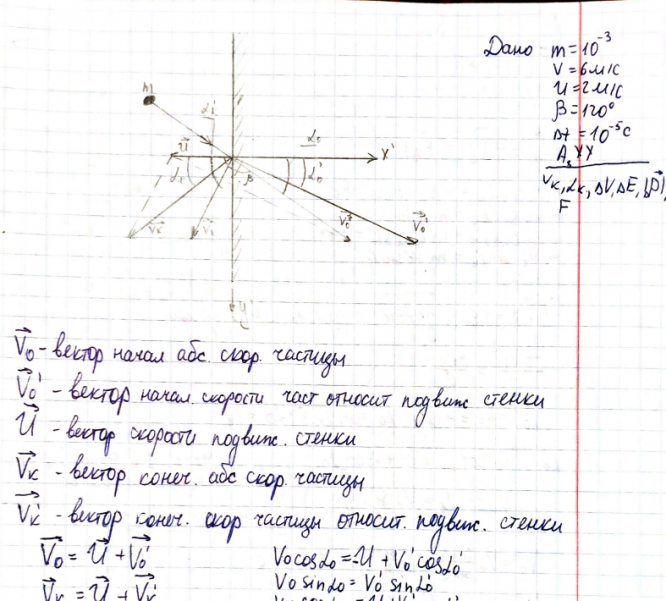 Дано m=10⁻³
V=6м/с
U=2м/с
β=120°
Δt=10⁻⁵с
Vк, αк, ΔV, ΔE, |Δp|,
F
m
α₀
X'
U⃗
α₀'
β
V⃗к
V⃗₀
V⃗₀'
y'
V⃗₀ - вектор начал абс. скор. частицы
V⃗₀' - вектор начал. скорости част относит подвиж стенки
U⃗ - вектор скорости подвиж. стенки
V⃗к - вектор конеч. абс скор. частицы
V⃗к' - вектор конеч. скор частицы относит. подвиж. стенки
V⃗₀ = U⃗ + V⃗₀' V₀cosα₀ = -U + V₀'cosα₀'
V₀ sinα₀ = V₀' sinα₀'
V⃗к = U⃗ + V⃗к'